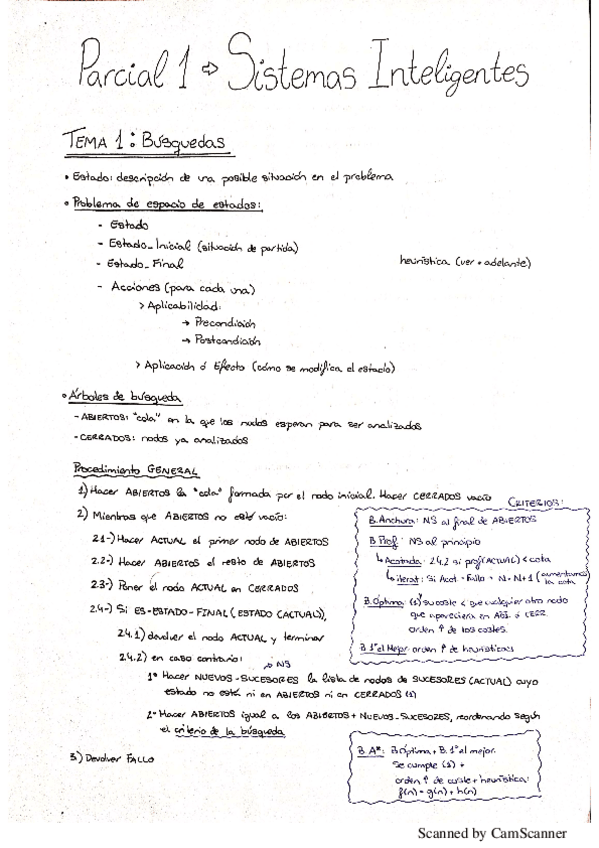 Parcial 1 ⇒ Sistemas Inteligentes
TEMA 1: Búsquedas
• Estado: descripción de una posible situación en el problema
• Problema de espacio de estados:
- Estado
- Estado_Inicial (situación de partida)
- Estado_Final
heurística (ver + adelante)
- Acciones (para cada una)
> Aplicabilidad:
→ Precondición
→ Postcondición
> Aplicación ó Efecto (cómo se modifica el estado)
• Árboles de búsqueda
- ABIERTOS: "cola" en la que los nodos esperan para ser analizados
- CERRADOS: nodos ya analizados
Procedimiento GENERAL
1) Hacer ABIERTOS la "cola" formada por el nodo inicial. Hacer CERRADOS vacío
2) Mientras que ABIERTOS no esté vacío:
2.1-) Hacer ACTUAL el primer nodo de ABIERTOS
2.2-) Hacer ABIERTOS el resto de ABIERTOS
2.3-) Poner el nodo ACTUAL en CERRADOS
2.4-) Si ES-ESTADO-FINAL (ESTADO (ACTUAL)),
2.4.1) devolver el nodo ACTUAL y terminar
2.4.2) en caso contrario:
→ NS
1º Hacer NUEVOS-SUCESORES la lista de nodos de SUCESORES (ACTUAL) cuyo
estado no esté ni en ABIERTOS ni en CERRADOS (1)
2º Hacer ABIERTOS igual a los ABIERTOS + NUEVOS-SUCESORES, reordenando según
el criterio de la búsqueda
3) Devolver FALLO
CRITERIOS:
B. Anchura: NS al final de ABIERTOS
B. Prof: NS al principio
↳ Acotada: 2.4.2 si prof(ACTUAL) < cota
↳ iterat: Si Acot = Fallo → N = N+1 (aumentamos
la cota
B. Óptima: (1) su coste < que cualquier otro nodo
que apareciera en ABI. ó CERR.
orden ↑ de los costes.
B. 1º el Mejor: orden ↑ de heurísticas
B. A*: B. Óptima + B. 1º el mejor.
Se cumple (1) +
orden ↑ de coste + heurística:
f(n) = g(n) + h(n)
Scanned by CamScanner